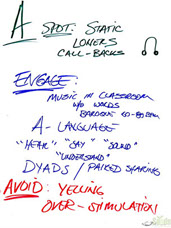 A
SPOT: STATIC
LONERS
CALL-BACKS
ENGAGE:
MUSIC IN CLASSROOM
W/O WORDS
BAROQUE 60-80 BPM
A-LANGUAGE
"HEAR" "SAY" "SOUND"
"UNDERSTAND"
DYADS / PAIRED SHARING
AVOID: YELLING
OVER-STIMULATION